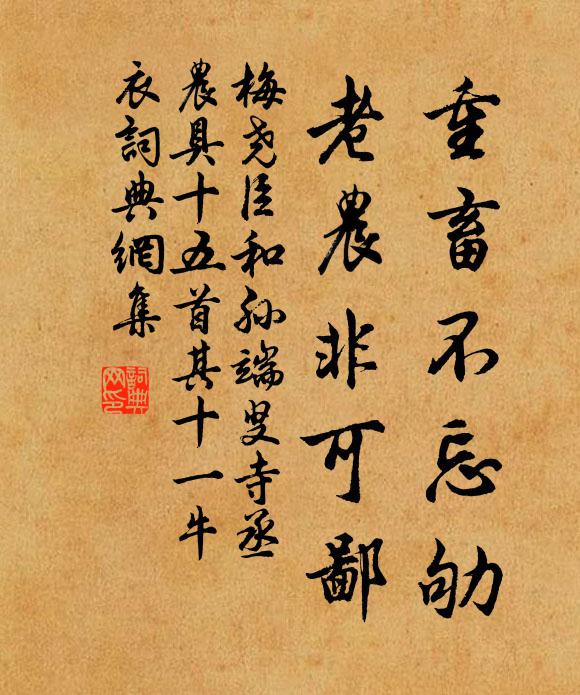 重畜不忘劬
老農非可鄙
梅尧臣和孙端叟寺丞
農具十五首其十一牛
衣詞典網集
詞典网印